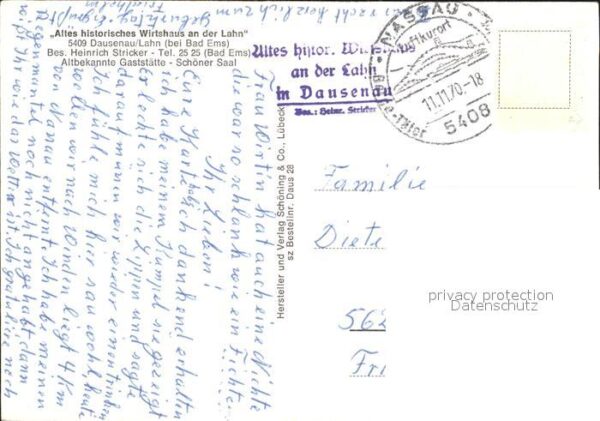 „Altes historisches Wirtshaus an der Lahn"
5409 Dausenau/Lahn (bei Bad Ems)
Bes. Heinrich Stricker - Tel. 25 25 (Bad Ems)
Altbekannte Gaststätte - Schöner Saal
Altes histor. Wirtshaus
an der Lahn
in Dausenau
Bes.: Heinr. Stricker
NASSAU
Luftkurort
11.11.70-18
5408
Frau Wirtin hat auch eine Nichte
die war so schlank wie ein Fichte
Ihr Lieben!
Eure Karte dankend erhalten
ich habe meinem Kumpel sie gezeigt
Er leckte sich die Lippen und sagte
darauf müssen wir wieder einen trinken
Ich fühle mich hier sau wohl, heute
wollen wir nach Winden liegt 4 Km
von Nassau entfernt. Ich habe meinen
Regenmantel noch nicht angehabt dann
wißt Ihr wie das Wetter ist. Ich gratuliere noch
recht herzlich zum
Geburtstag
Hersteller und Verlag Schöning & Co., Lübeck
sz Bestellnr. Daus 28
Familie
Diete
562
Fri
privacy protection
Datenschutz